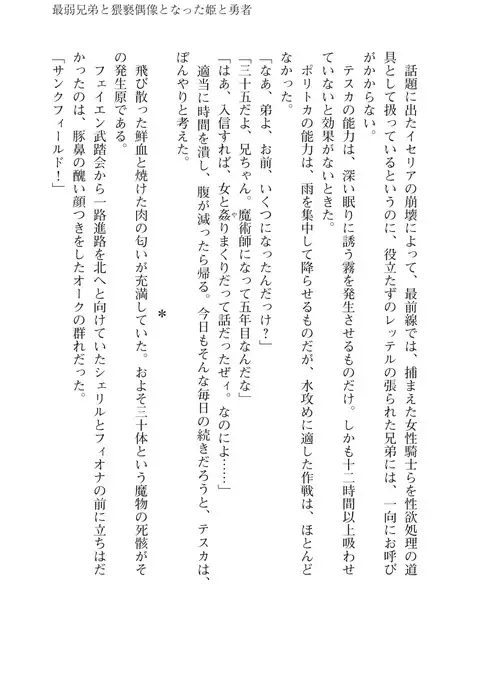 最弱兄弟と猥褻偶像となった姫と勇者
話題に出たイセリアの崩壊によって、最前線では、捕まえた女性騎士らを性欲処理の道
具として扱っているというのに、役立たずのレッテルの張られた兄弟には、一向にお呼び
がかからない。
テスカの能力は、深い眠りに誘う霧を発生させるものだけ。しかも十二時間以上吸わせ
ていないと効果がないときた。
ポリトカの能力は、雨を集中して降らせるものだが、水攻めに適した作戦は、ほとんど
なかった。
「なあ、弟よ、お前、いくつになったんだっけ？」
「三十五だよ、兄ちゃん。魔術師になって五年目なんだな」
「はあ、入信すれば、女と姦りまくりだって話だったぜィ。なのによ……」
適当に時間を潰し、腹が減ったら帰る。今日もそんな毎日の続きだろうと、テスカは、
ぼんやりと考えた。
＊
飛び散った鮮血と焼けた肉の匂いが充満していた。およそ三十体という魔物の死骸がそ
の発生原である。
フェイエン武踏会から一路進路を北へと向けていたシェリルとフィオナの前に立ちはだ
かったのは、豚鼻の醜い顔つきをしたオークの群れだった。
「サンクフィールド！」